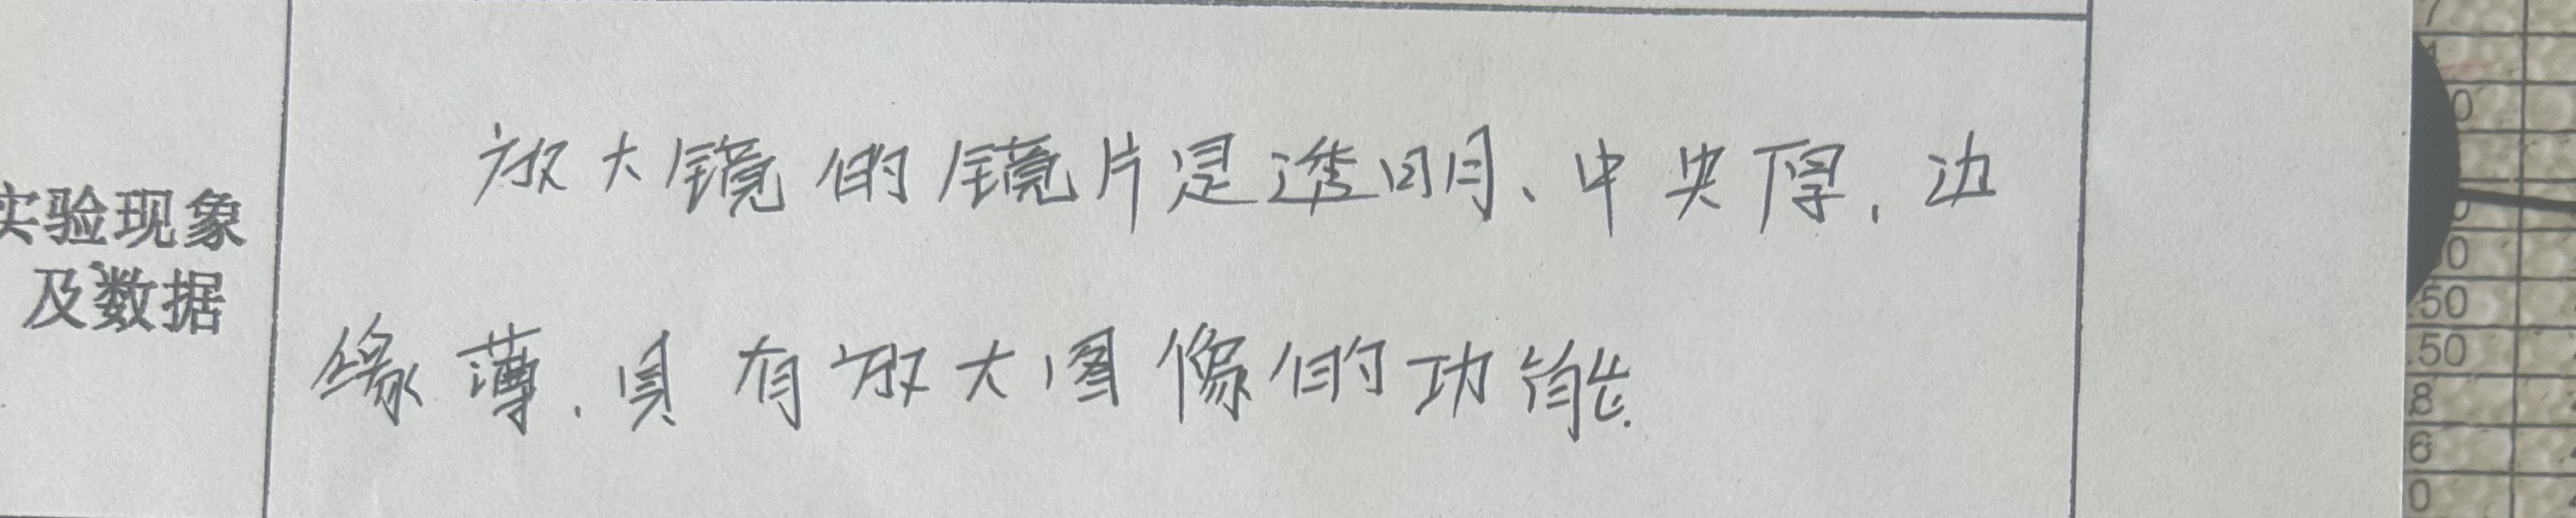 放大镜的镜片是透明、中央厚,边
实验现象
及数据
缘薄.具有放大图像的功能.
50
.50
8
6
0